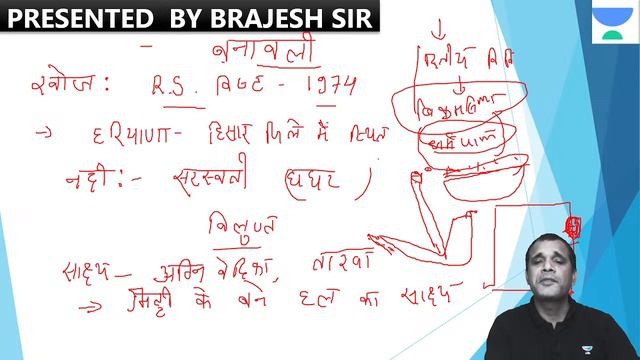 PRESENTED BY BRAJESH SIR
- बनावली
खोज : R.S. विष्ट - 1974
→ हरियाणा - हिसार जिले में स्थित
नदी :- सरस्वती (घघर)
विलुप्त
साक्ष्य - अग्नि वेदिका, तारखा
→ मिट्टी के बने हल का साक्ष्य